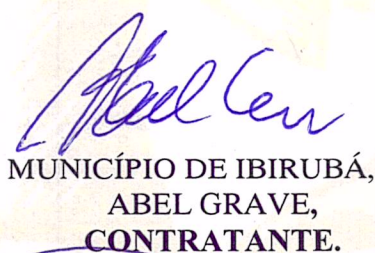 MUNICÍPIO DE IBIRUBÁ,
ABEL GRAVE,
CONTRATANTE.